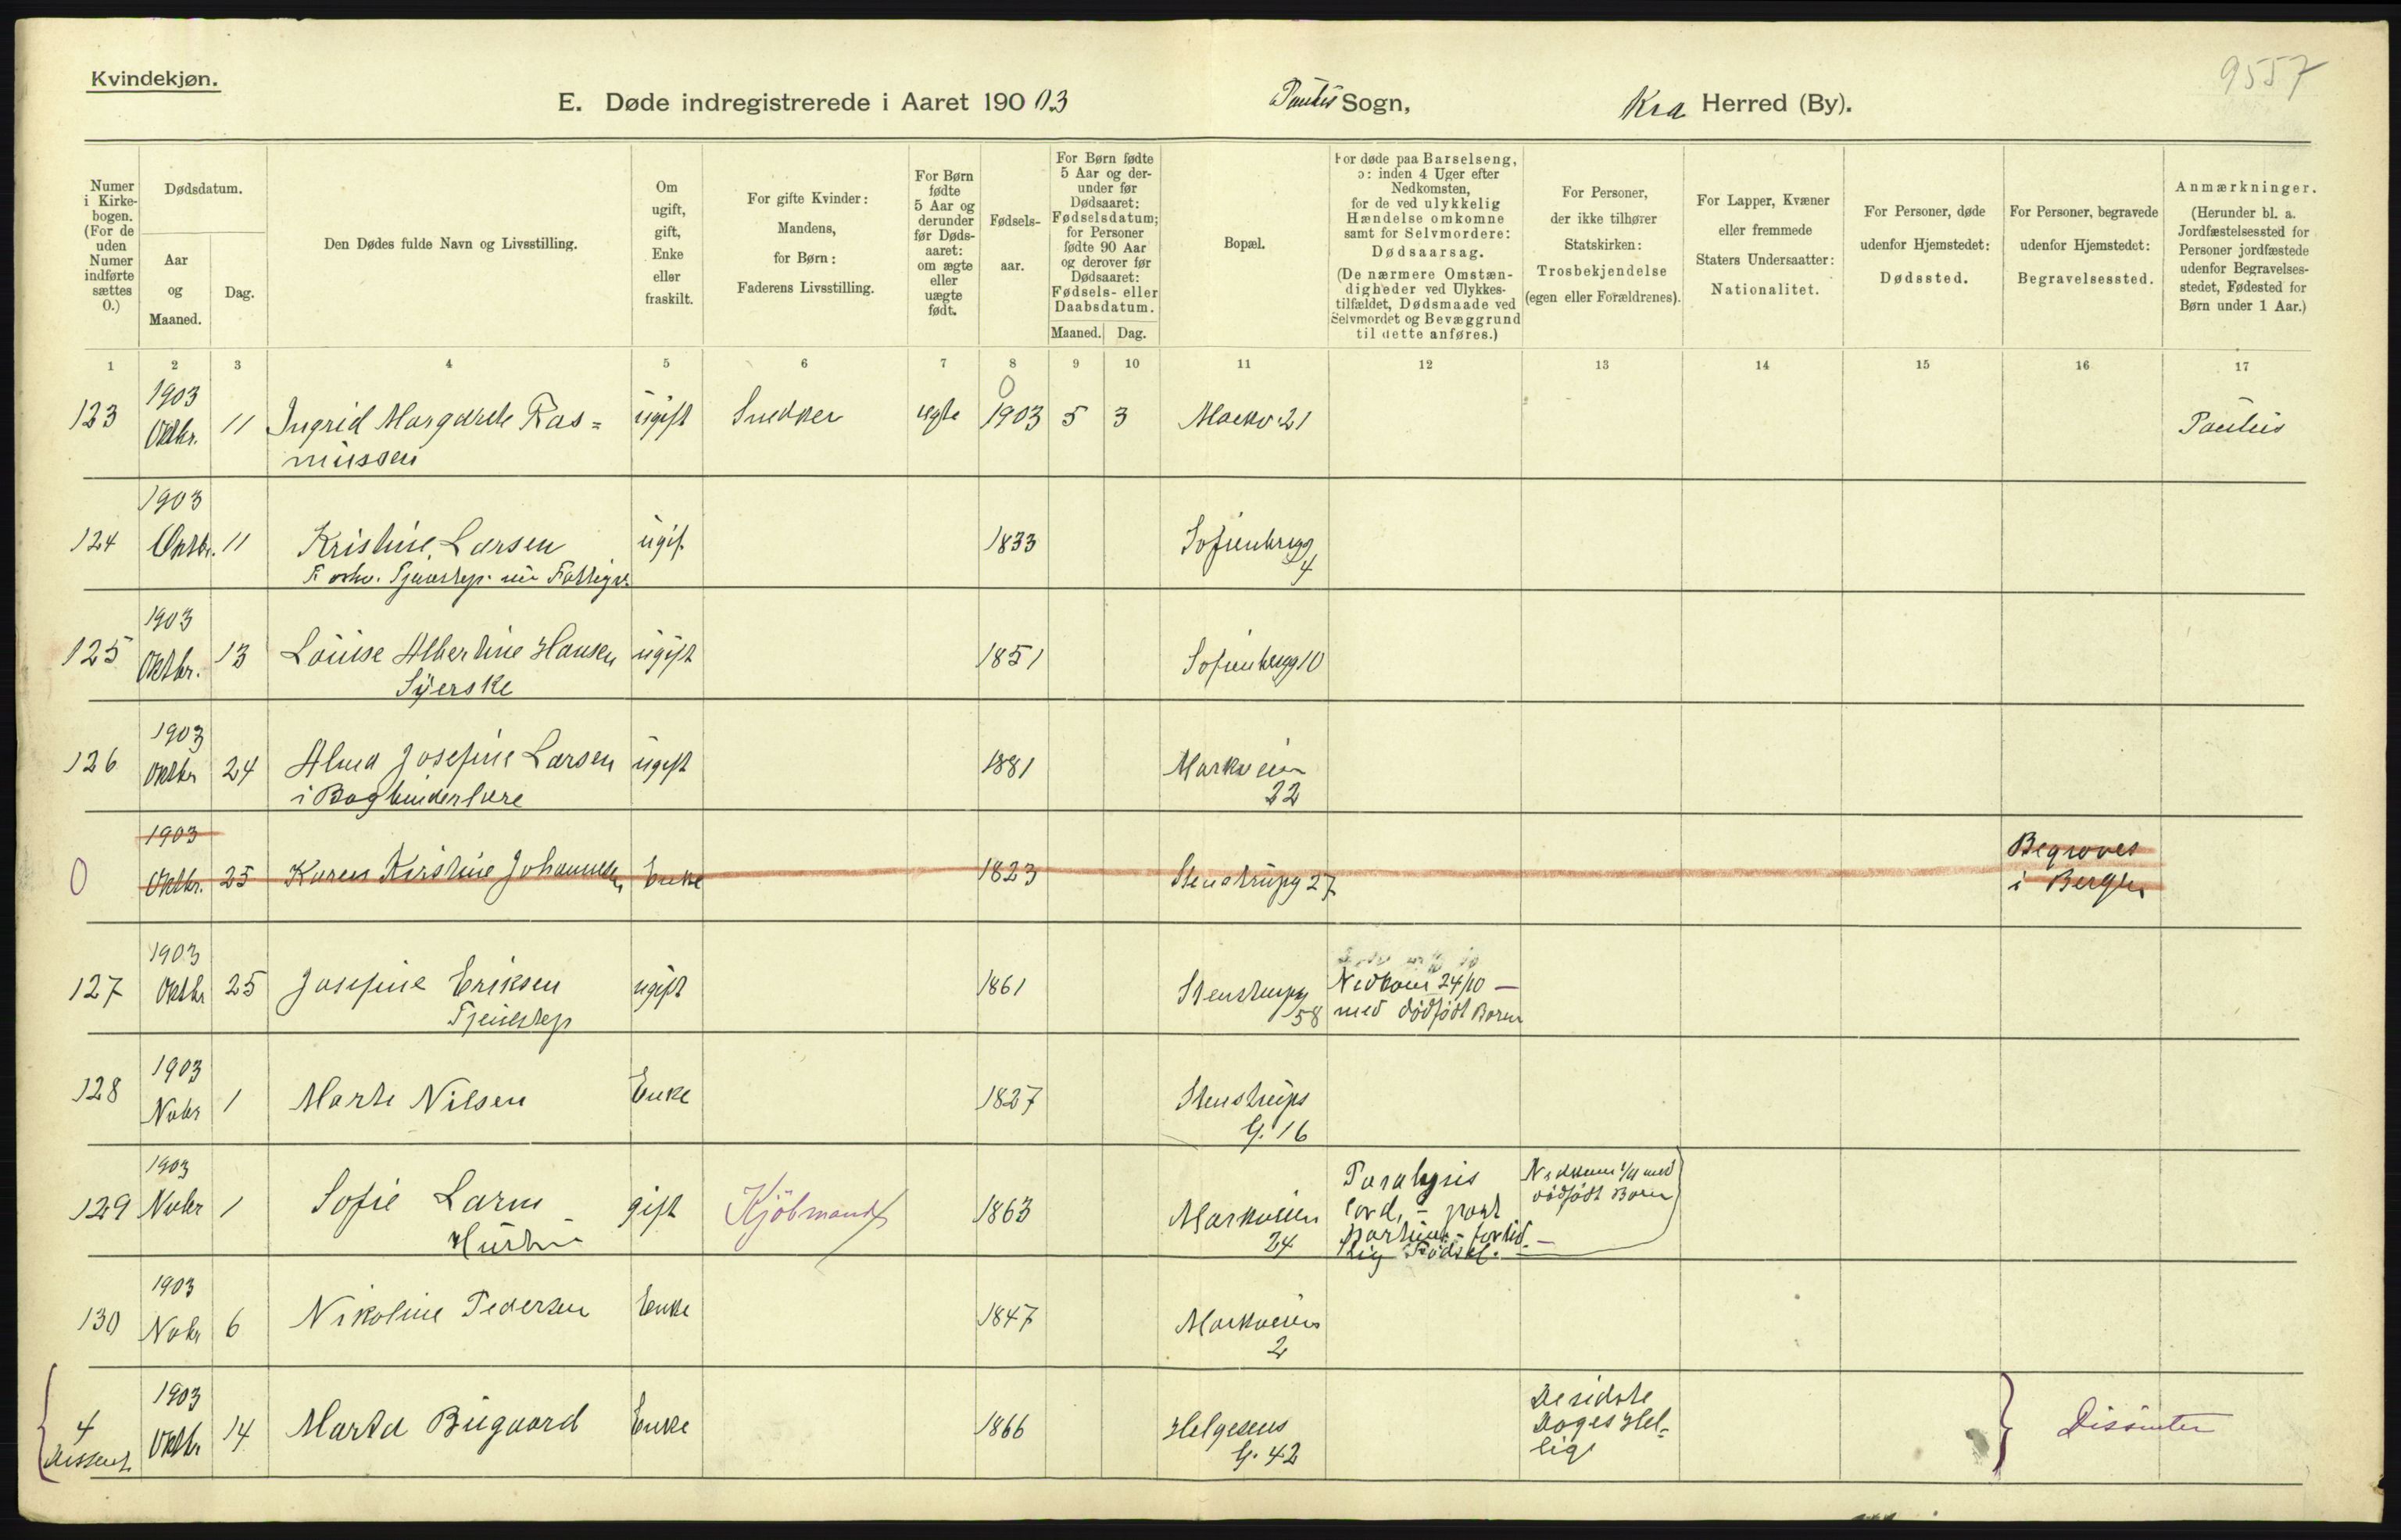 Kvindekjøn.
9557
E. Døde indregistrerede i Aaret 190 03 Paulus Sogn, Kra Herred (By).
Numer i Kirkebogen. (For de uden Numer indførte sættes 0.)
Dødsdatum.
Aar og Maaned.
Dag.
Den Dødes fulde Navn og Livsstilling.
Om ugift, gift, Enke eller fraskilt.
For gifte Kvinder: Mandens, for Børn: Faderens Livsstilling.
For Børn fødte 5 Aar og derunder før Dødsaaret: om ægte eller uægte født.
Fødselsaar.
For Børn fødte 5 Aar og derunder før Dødsaaret: Fødselsdatum; for Personer fødte 90 Aar og derover før Dødsaaret: Fødsels- eller Daabsdatum.
Maaned. Dag.
Bopæl.
For døde paa Barselseng, ɔ: inden 4 Uger efter Nedkomsten, for de ved ulykkelig Hændelse omkomne samt for Selvmordere: Dødsaarsag. (De nærmere Omstændigheder ved Ulykkestilfældet, Dødsmaade ved Selvmordet og Bevæggrund til dette anføres.)
For Personer, der ikke tilhører Statskirken: Trosbekjendelse (egen eller Forældrenes).
For Lapper, Kvæner eller fremmede Staters Undersaatter: Nationalitet.
For Personer, døde udenfor Hjemstedet: Dødssted.
For Personer, begravede udenfor Hjemstedet: Begravelsessted.
Anmærkninger. (Herunder bl. a. Jordfæstelsessted for Personer jordfæstede udenfor Begravelsesstedet, Fødested for Børn under 1 Aar.)
1 2 3 4 5 6 7 8 9 10 11 12 13 14 15 16 17
123 1903 Oktbr. 11 Ingrid Margarete Ras= ugift Snedker ægte 0 1903 5 3 Markv 21 Paulus
mussen
124 1903 Oktbr. 11 Kristine Larsen ugif. 1833 Sofienbergg 4
Forhv. Tjenestep.
125 1903 Oktbr. 13 Louise Albertine Hansen ugift 1851 Sofienbergg 10
Syerske
126 1903 Oktbr 24 Alma Josefine Larsen ugift 1881 Markveien 22
i Bogbinderlære
0 1903 Oktbr. 25 Karen Kirstine Johannessen Enke 1823 Stenstrupg 27 Begraves
i Bergen
127 1903 Oktbr 25 Josefine Eriksen ugift 1861 Stenstrupg 58 Nedkom 24/10 —
Tjenestep med dødfødt Barn
128 1903 Novbr 1 Marte Nilsen Enke 1827 Stenstrups
G. 16
129 1903 Novbr 1 Sofie Larm gift Kjöbmand 1863 Markveien 24 Paralysis
cord. - post
partum - fortid-
lig Fødsel. —
Nedkom 1/11 med
dødfødt Barn
Hustru
130 1903 Novbr 6 Nikoline Pedersen Enke 1847 Markveien
2
4 Dissent. 1903 Oktbr 14 Marta Bugaard Enke 1866 Helgesens
G. 42
De sidste
Dages Hel=
lige
Dissenter